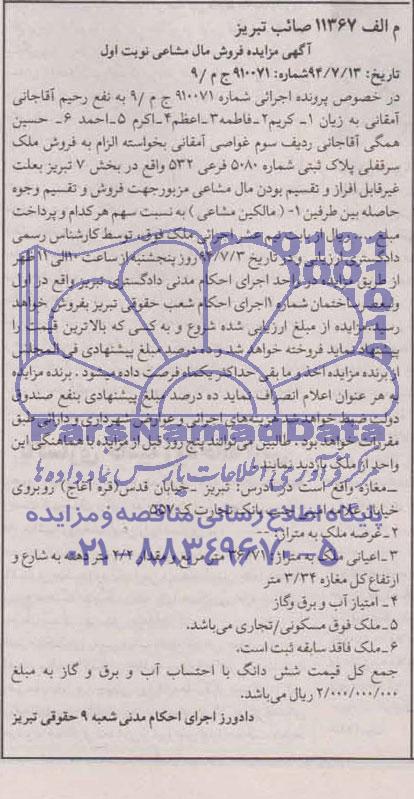 م الف ۱۱۳۶۷ صائب تبریز
آگهی مزایده فروش مال مشاعی نوبت اول
تاریخ: ۹۴/۷/۱۳شماره: ۹۱۰۰۷۱ج م /۹
در خصوص پرونده اجرائی شماره ۹۱۰۰۷۱ ج م /۹ به نفع رحیم آقاجانی
آمقانی به زیان ۱- کریم۲-فاطمه۳-اعظم۴-اکرم ۵-احمد ۶- حسین
همگی آقاجانی ردیف سوم غواصی آمقانی بخواسته الزام به فروش ملک
سرقفلی پلاک ثبتی شماره ۵۰۸۰ فرعی ۵۳۲ واقع در بخش ۷ تبریز بعلت
غیرقابل افراز و تقسیم بودن مال مشاعی مزبورجهت فروش و تقسیم وجوه
حاصله بین طرفین ۱- (مالکین مشاعی) به نسبت سهم هر کدام و پرداخت
مبلغ ریال از بابت نیم عشر اجرائی ملک فوق، توسط کارشناس رسمی
دادگستری ارزیابی و در تاریخ روز پنجشنبه از ساعت ۱۰الی ۱۱ ظهر
از طریق مزایده در واحد اجرای احکام مدنی دادگستری تبریز واقع در اول
ولیعصر ساختمان شماره ۱اجرای احکام شعب حقوقی تبریز بفروش خواهد
رسید.مزایده از مبلغ ارزیابی شده شروع و به کسی که بالاترین قیمت را
پیشنهاد نماید فروخته خواهد شد و ده درصد مبلغ پیشنهادی فی المجلس
از برنده مزایده اخذ و ما بقی حداکثر یکماه فرصت داده میشود . برنده مزایده
به هر عنوان اعلام انصراف نماید ده درصد مبلغ پیشنهادی بنفع صندوق
دولت ضبط خواهد شد هزینه‌های اجرائی و عوارض شهرداری و دارائی طبق
مقررات خواهد بود. طالبین می‌توانند پنج روز قبل از مزایده با هماهنگی این
واحد از ملک بازدید نمایند.
-مغازه واقع است در آدرس: تبریز - خیابان قدس(قره آغاج) روبروی
خیابان علامه امینی جنب بانک تجارت ک ۵۵۷
۲-عرصه ملک به متراژ: --
۳-اعیانی ملک به متراژ: متر مربع و مقدار ۴/۲ متر دهنه به شارع و
ارتفاع کل مغازه ۳/۳۴ متر
۴- امتیاز آب و برق وگاز
۵-ملک فوق مسکونی/تجاری می‌باشد.
۶-ملک فاقد سابقه ثبت است.
جمع کل قیمت شش دانگ با احتساب آب و برق و گاز به مبلغ
۲/۰۰۰/۰۰۰/۰۰۰ ریال می‌باشد.
دادورز اجرای احکام مدنی شعبه ۹ حقوقی تبریز
ParsNamadData
مرکز فرآوری اطلاعات پارس نماد داده ها
پایگاه اطلاع رسانی مناقصه و مزایده
۰۲۱-۸۸۳۴۹۶۷۰-۵